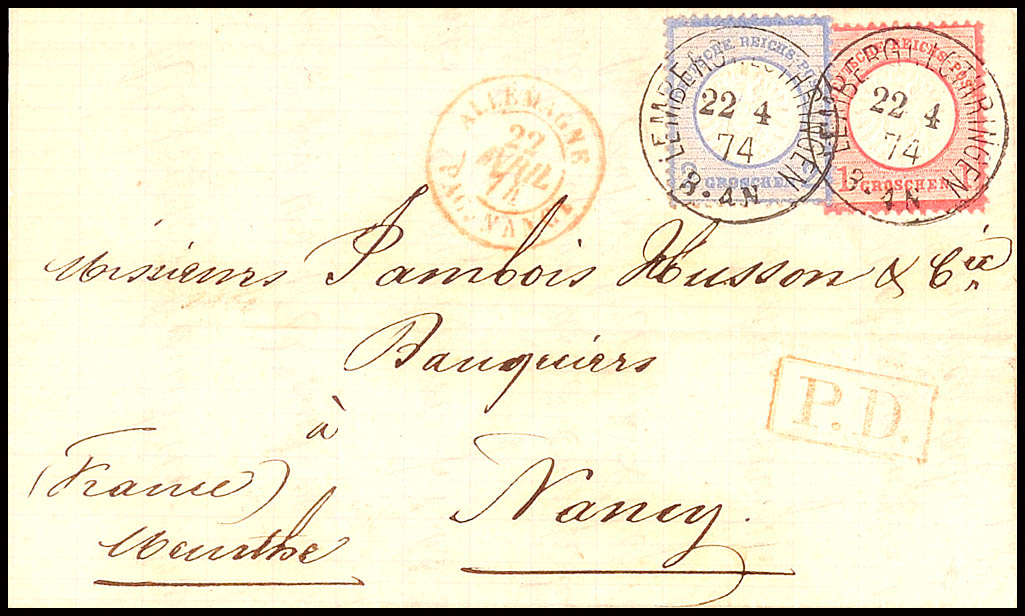 DEUTSCHE REICHS-POST
2 GROSCHEN 2
LEMBERG LOTHRINGEN
22 4
74
8.-9N
DEUTSCHE REICHS-POST
1 GROSCHEN 1
LEMBERG LOTHRINGEN
22 4
74
ALLEMAGNE
22
AVRIL
74
PAG. NANCY
Messieurs Jambois Husson & Cie
Banquiers
P.D.
à
(France)
Nancy.
Meurthe